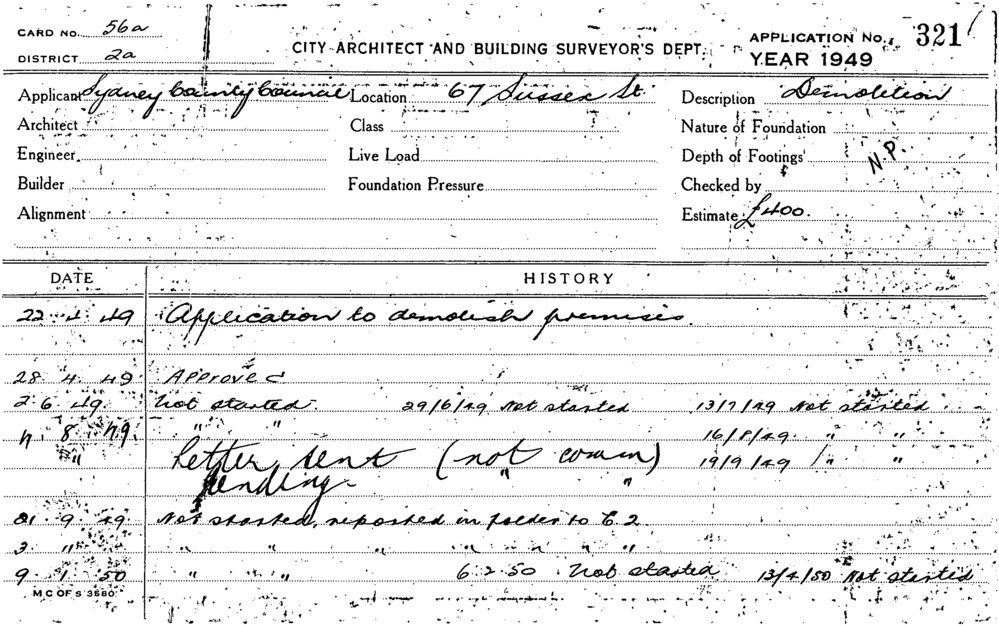 CARD No. 56a
DISTRICT 2a
CITY ARCHITECT AND BUILDING SURVEYOR'S DEPT.
APPLICATION No. 321
YEAR 1949
Applicant Sydney County Council Location 67 Sussex St. Description Demolition
Architect Class Nature of Foundation
Engineer Live Load Depth of Footings N.P.
Builder Foundation Pressure Checked by
Alignment Estimate £400.
DATE HISTORY
22 4 49 Application to demolish premises.
28. 4. 49 Approved
2 6 49 Not started. 29/6/49 Not started 13/7/49 Not started
8. 49. " " 16/8/49. " "
" Letter sent (not comm) 19/9/49 " "
pending. " "
9 49 Not started, reported in folder to C.2
3 " " " " " " " " "
9 1 50 " " " 6 2 50 Not started 13/4/50 Not started
M C OF S 3580